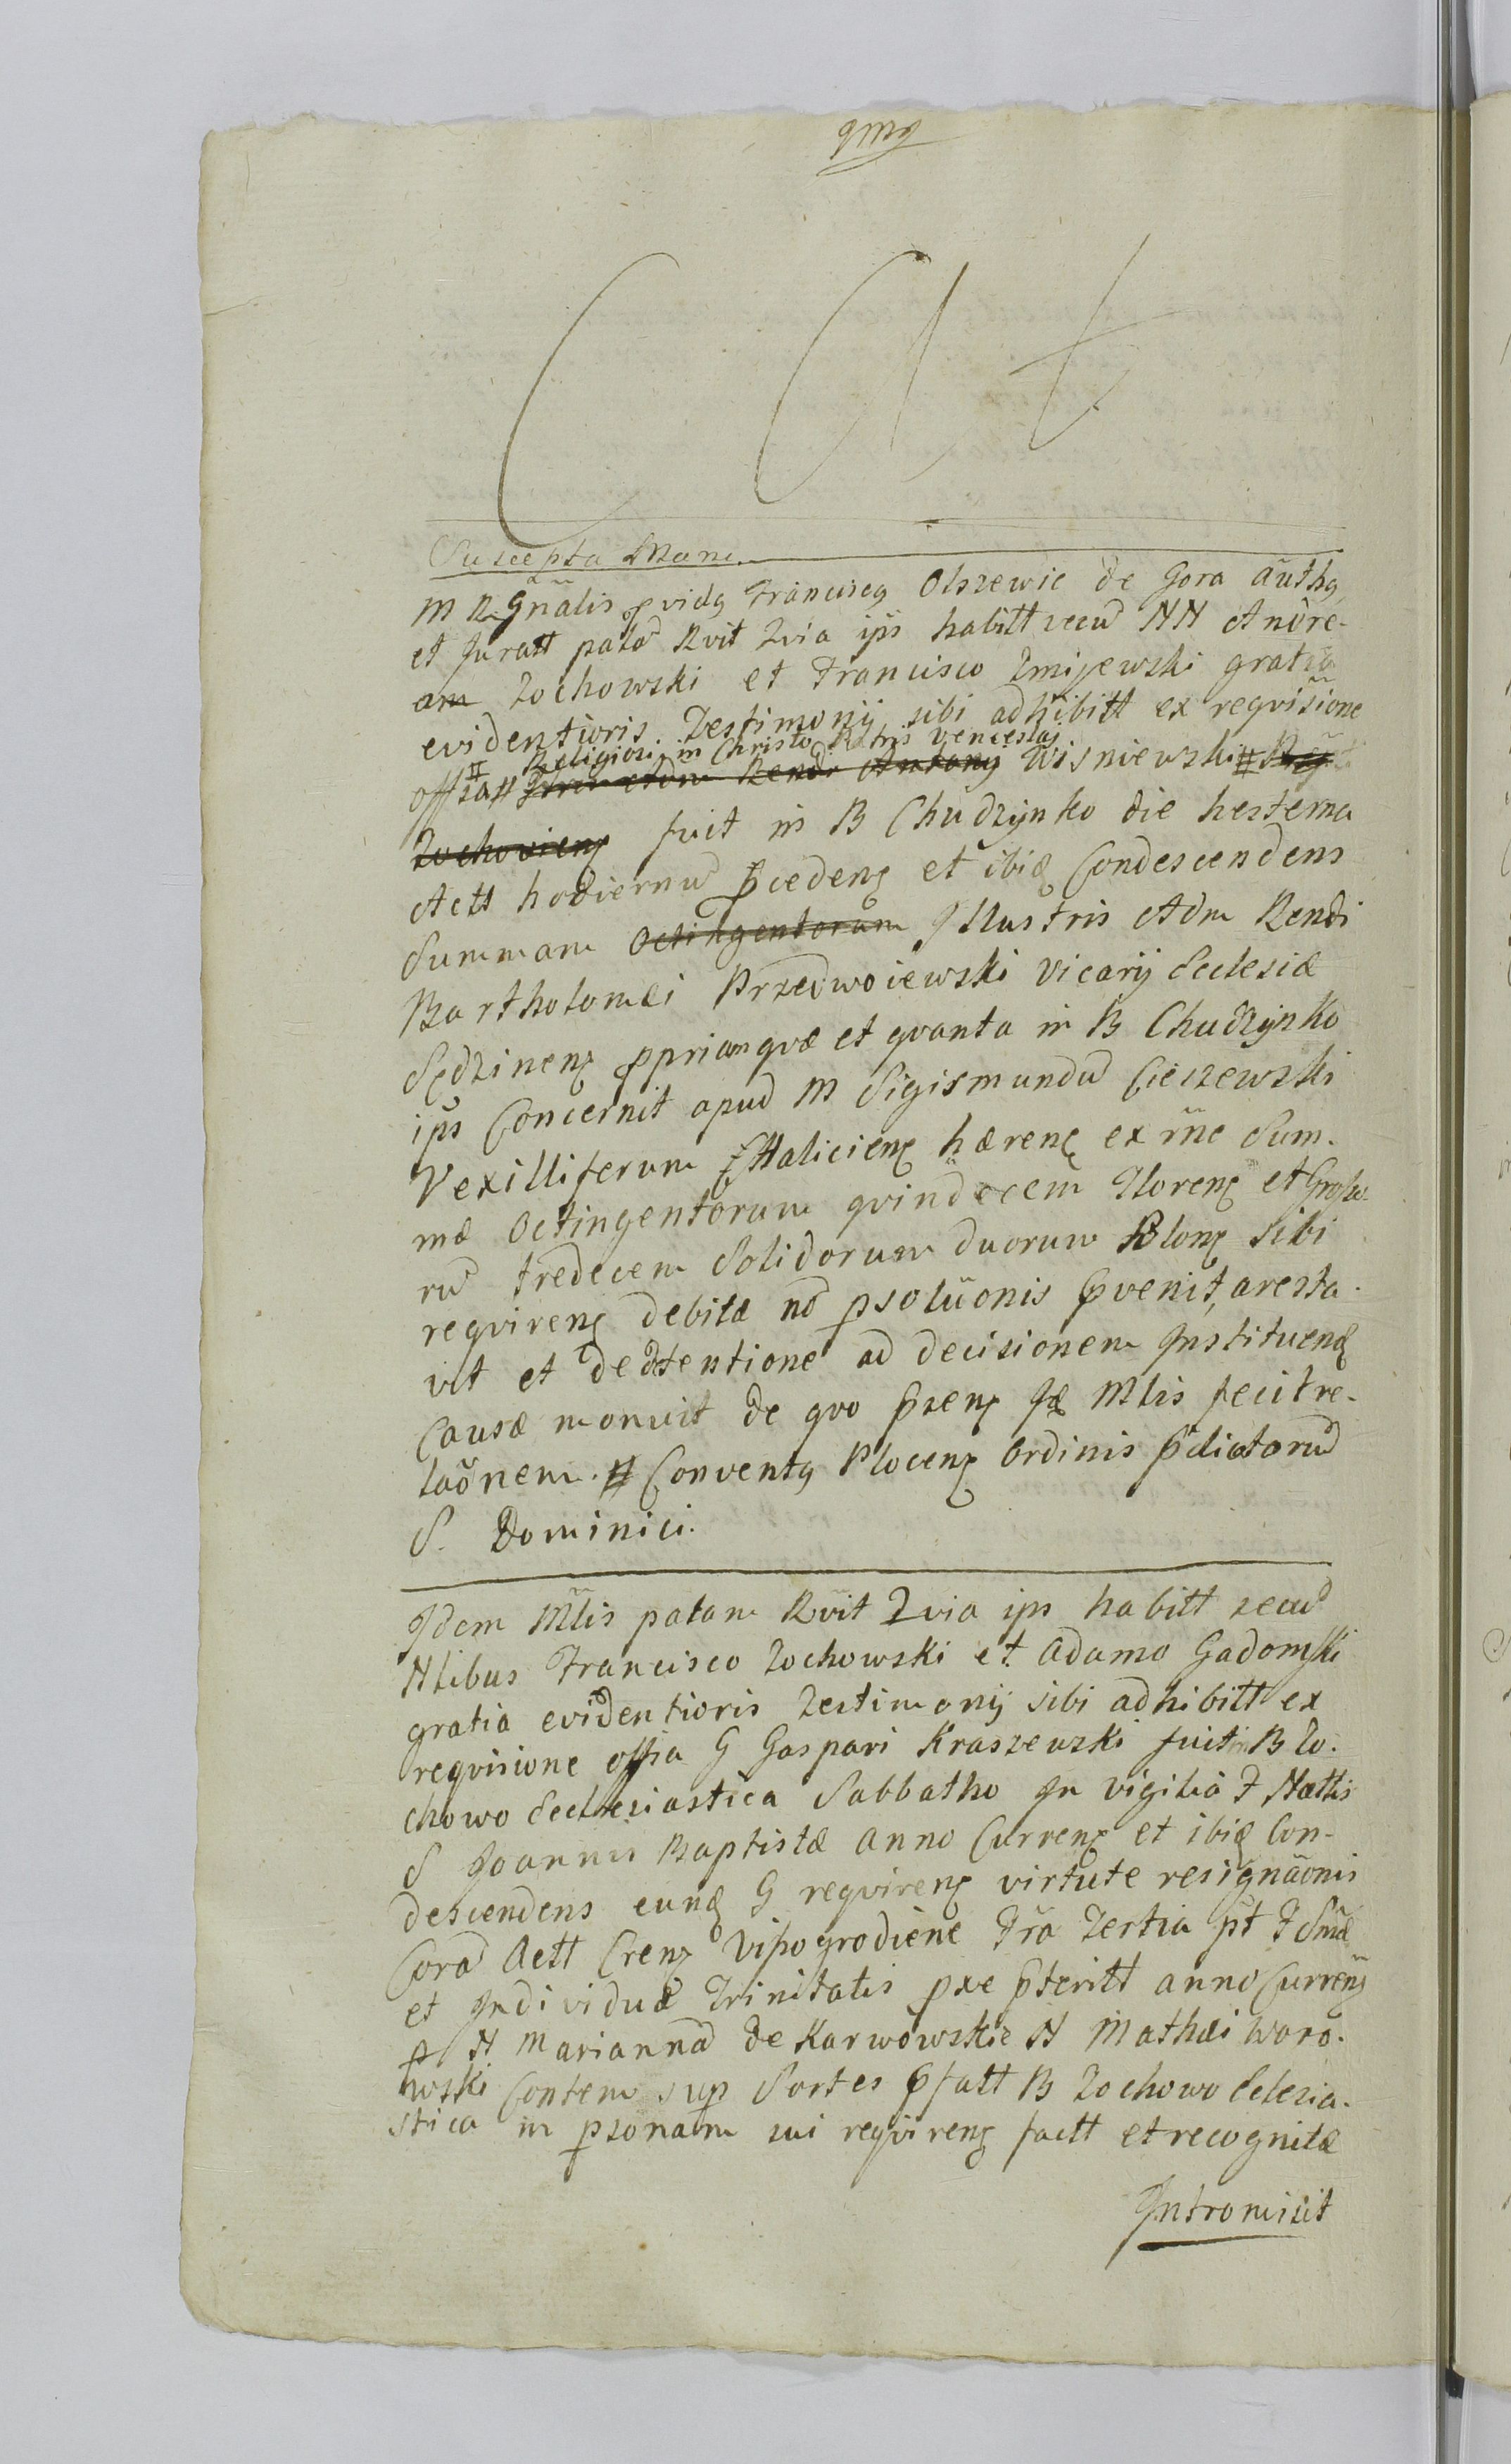 Suscepta Mane.
M R Gñalis pvidq Franciscq Olszewic de Gora autho
et Juratt palã Rvit Qvia ips habitt secũ NN Andre-
am Zochowski et Francisco Zmijewski gratia
evidentioris Testimonij sibi adhibitt ex reqvisione
Religiosi in Christo Patris Venceslaj
offsa # Rendi Antonij Wisniewski #
Zochovieng fuit in B Chudzynko die hesterna
Actt hodiernũ pcedeng et ibiq Condescendens
Summam Octingentorum Jllustris Adm Rendi
Bartholomæi Przedwoiewski Vicarij Ecclesiæ
Sędzineng ppriam qvæ et qvanta in B Chudzynko
ips Concernit apud M Sigismundũ Cieszewski
Vexilliferum Halicieng hæreng ex rñe Sum-
mæ Octingentorum qvindecem Floreng et Grosso-
rũ tredecem Solidorum duorum Plong sibi
reqvireng debitæ nõ psolũonis pvenit, aresta-
vit et de dtentione ad decisionem Jnstitueng
Causæ monuit de qvo pseng Jq Mlis fecit re-
laõnem. # Conventq Ploceng Ordinis pdicatorũ
S. Dominici.
Jdem Mlis palam Rvit Qvia ips habitt secũ
Nlibus Francisco Zochowski et Adamo Gadomski
gratia evidentioris Testimonij sibi adhibitt ex
reqvisione offsa G Gaspari Kraszewski fuit in B Zo-
chowo Ecclesiastica Sabbatho Jn vigilia F Nattis
S Joannis Baptistæ anno Curreng et ibiq Con-
descendens eunq G reqvireng virtute resignãonis
Corã Actt Creng Visogrodiene Fra Tertia pt F Smæ
et Jndividuæ Trinitatis pxe pteritt anno Curreng
p N Mariannã de Karwowskie N Mathæi Woro-
wski Contem sup Sortes pfatt B Zochowo Eclesia-
stica in psonam sui reqvireng factt et recognitæ
Jntromisit